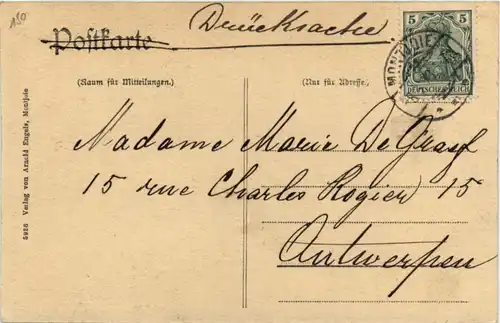 150
Drucksache
Postkarte
5 5
DEUTSCHES REICH
MONTJOIE
(Raum für Mitteilungen.)
(Nur für Adresse.)
Madame Marie De Graaf
15 rue Charles Rogier 15
Antwerpen
5926 Verlag von Arnold Engels, Montjoie